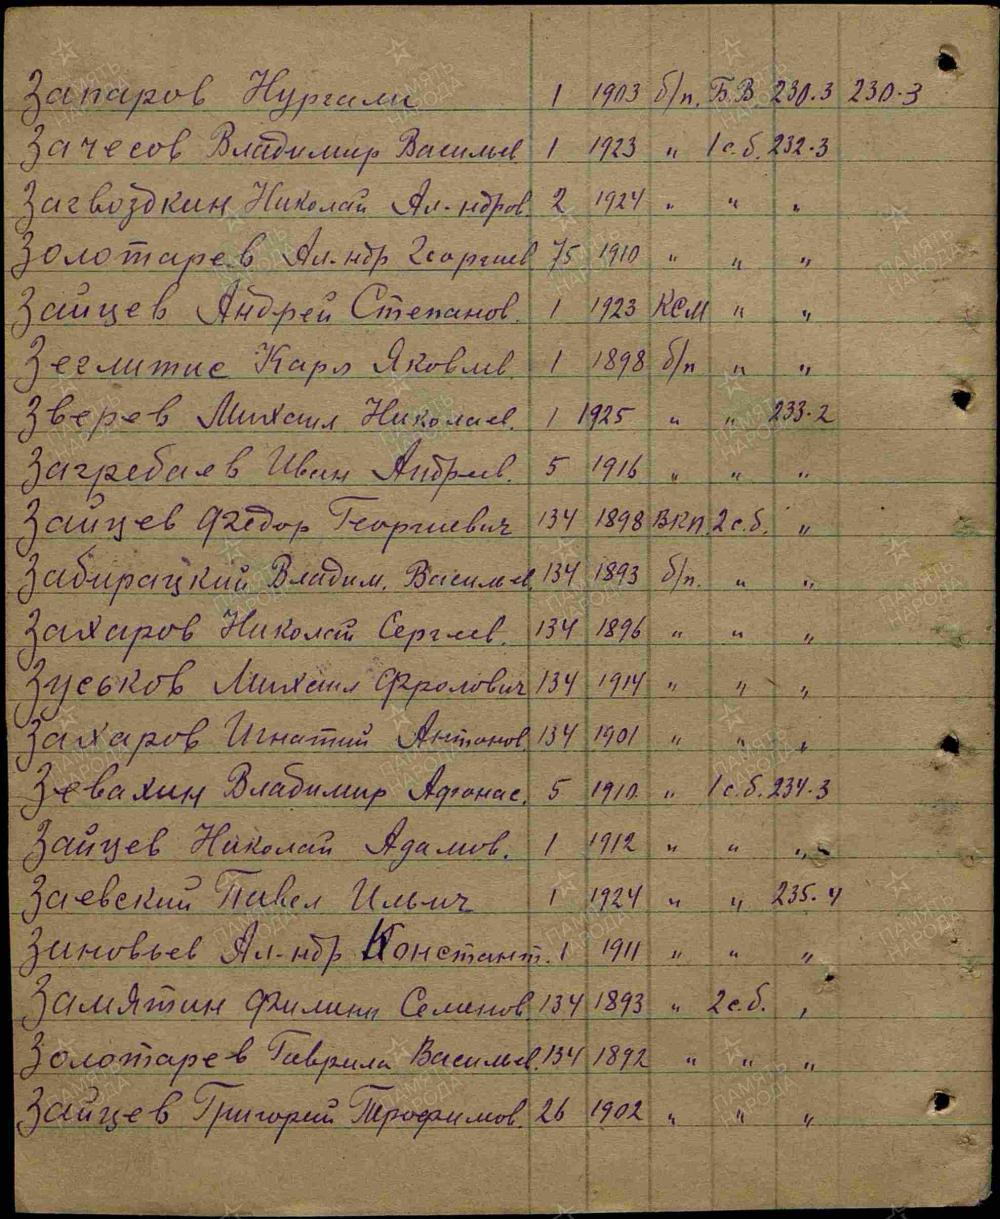 Запаров Нургали 1 1903 б/п. Б.В. 230.3 230.3
Зачесов Владимир Васильев 1 1923 " 1 с.б. 232.3
Загвоздкин Николай Ал-ндров. 2 1924 " " "
Золотарев Ал-ндр Георгиев 75 1910 " " "
Зайцев Андрей Степанов. 1 1923 КСМ " "
Зеглитис Карл Яковлев. 1 1898 б/п " "
Зверев Михаил Николаев. 1 1925 " " 233.2
Загребаев Иван Андреев. 5 1916 " " "
Зайцев Федор Георгиевич 134 1898 ВКП. 2 с.б. "
Забирацкий Владим. Васильев. 134 1893 б/п. " "
Захаров Николай Сергеев. 134 1896 " " "
Зуськов Михаил Фролович 134 1914 " " "
Захаров Игнатий Антонов 134 1901 " " "
Зевахин Владимир Афонас. 5 1910 " 1 с.б. 234.3
Зайцев Николай Адамов. 1 1912 " " "
Заевский Павел Ильич 1 1924 " " 235.4
Зиновьев Ал-ндр Констант. 1 1911 " " "
Замятин Филипп Семенов 134 1893 " 2 с.б. "
Золотарев Гаврила Васильев. 134 1892 " " "
Зайцев Григорий Трофимов. 26 1902 " " "